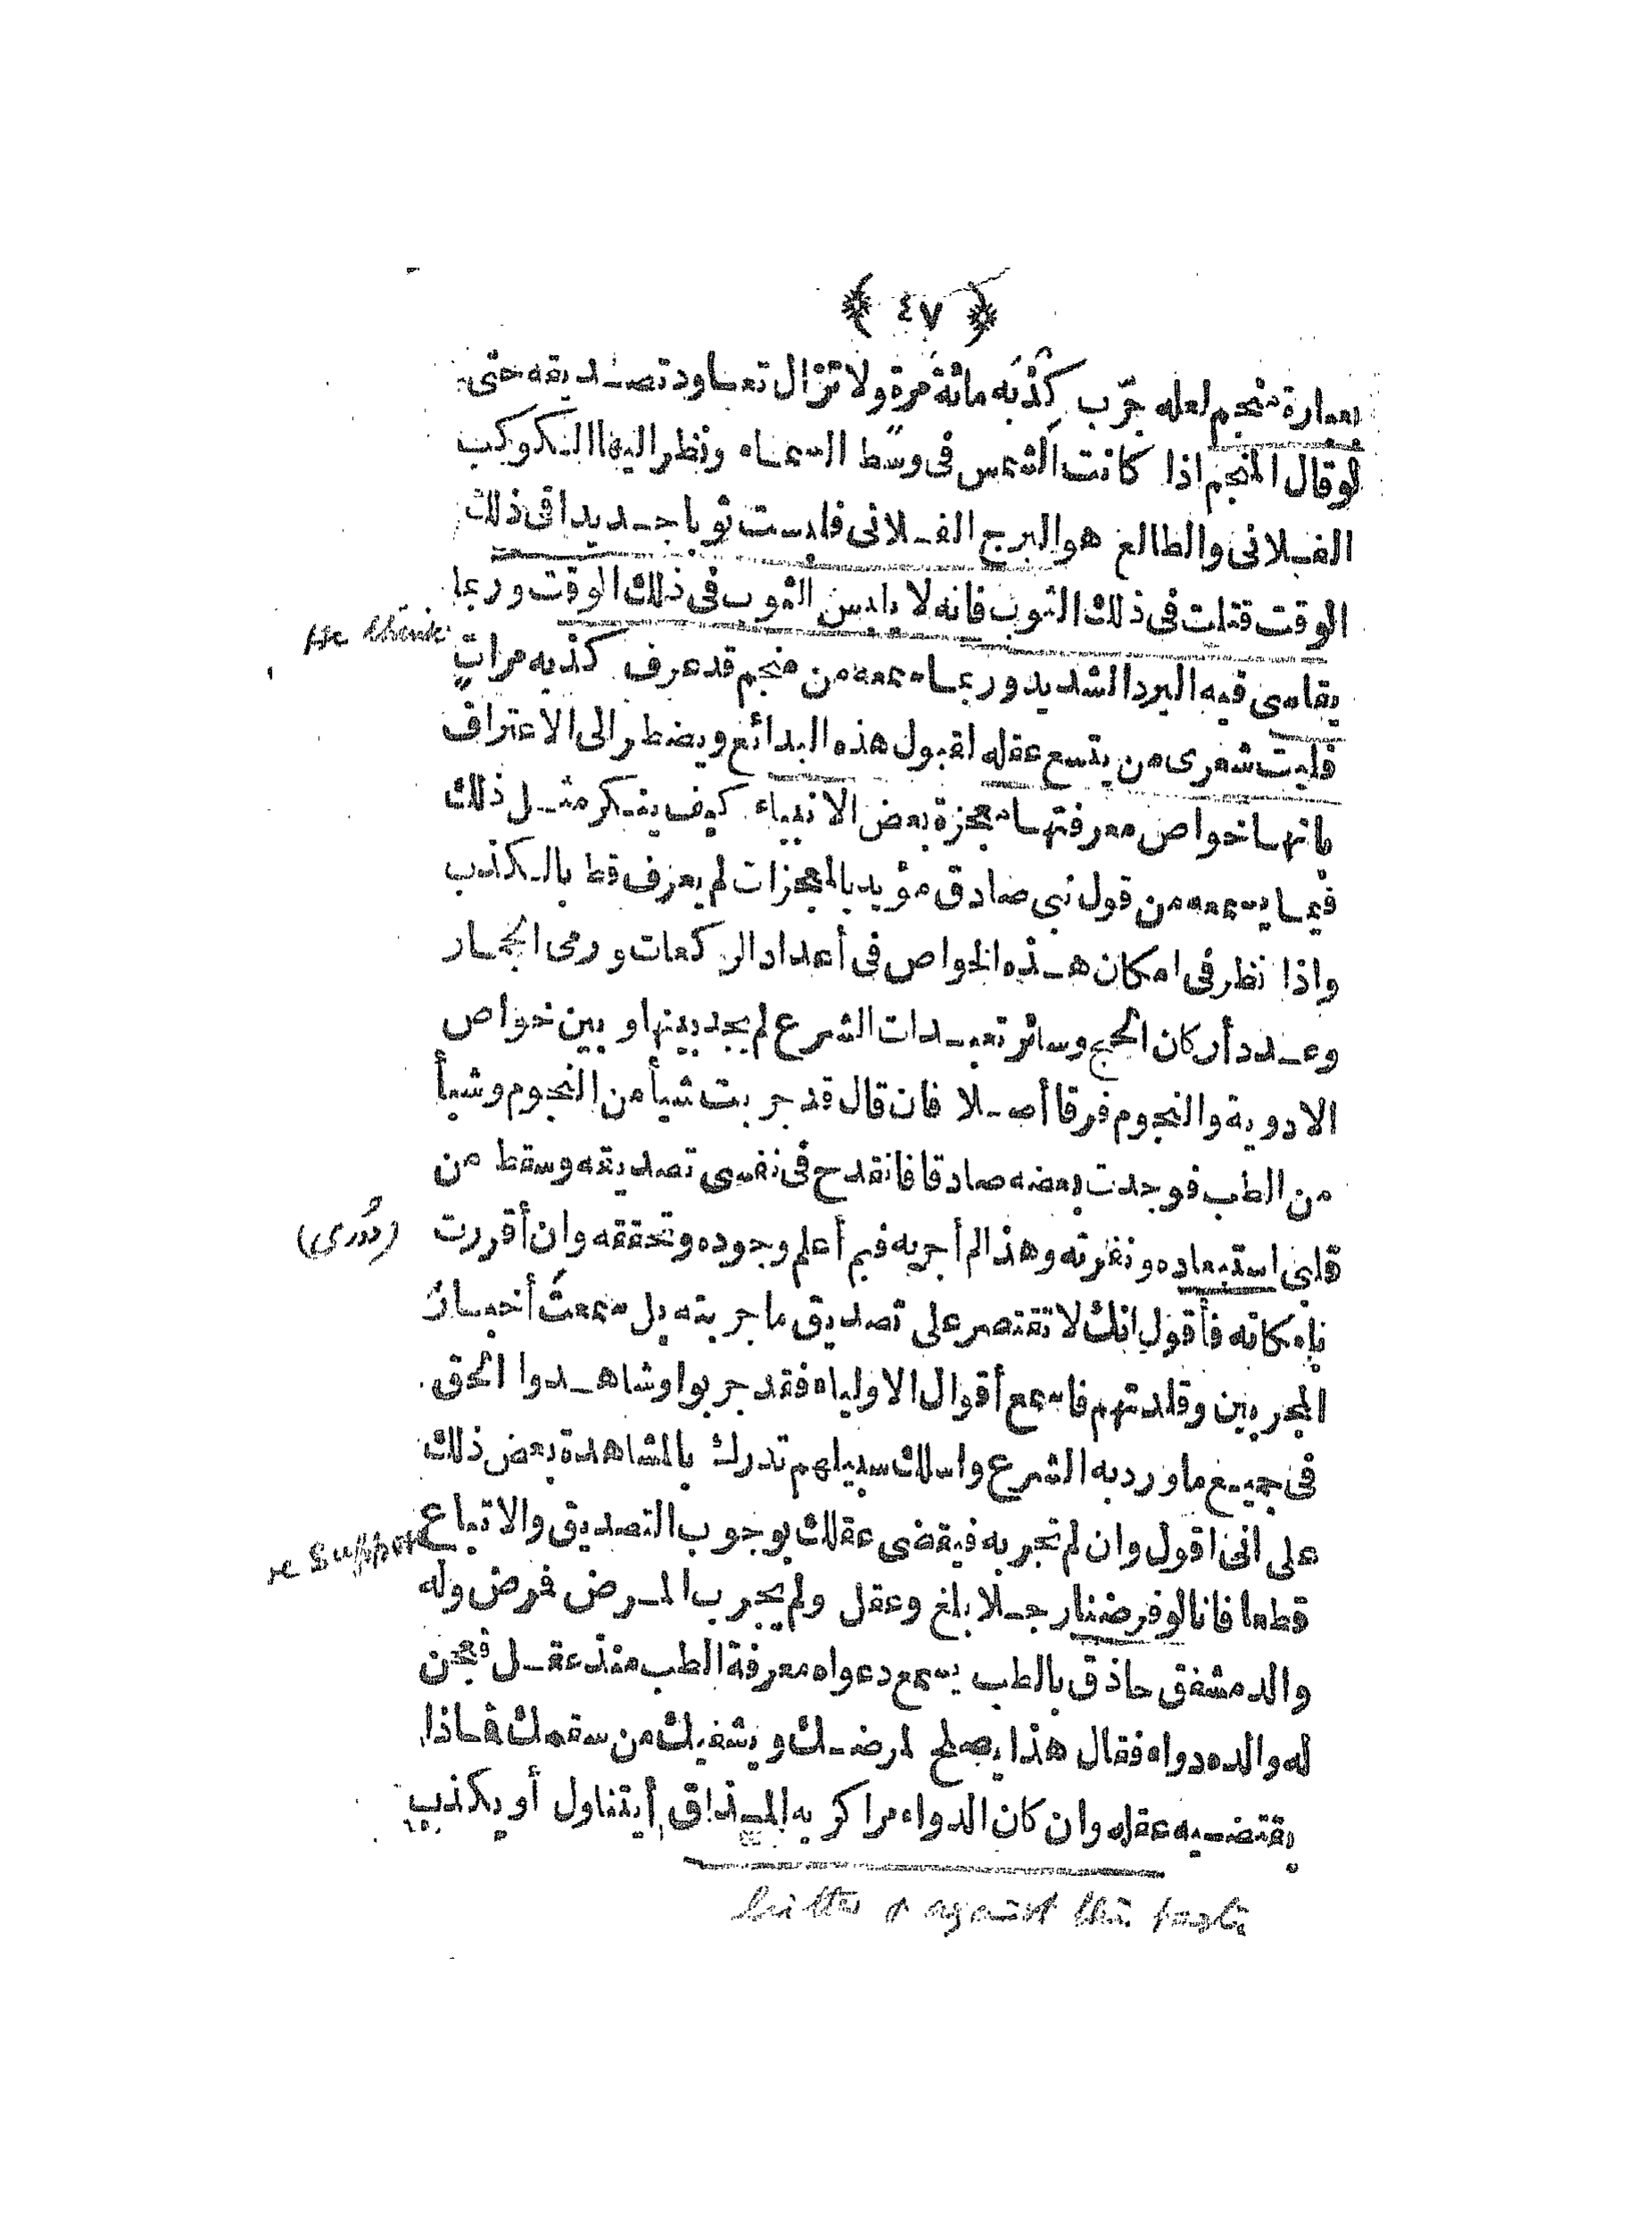 ﴿ ٤٧ ﴾
بعبارة منجم لعله جرّب كَذْبَه مائةَ مرة ولا تزال تعاود تصديقه حتى
لو قال المنجم اذا كانت الشمس فى وسط السماء ونظر اليها الكوكب
الفلانى والطالع هو البرج الفلانى فلبست ثوبا جديدا فى ذلك
الوقت قتلت فى ذلك الثوب فانه لا يلبس الثوب فى ذلك الوقت وربما
He think
يقاسى فيه البرد الشديد وربما سمعه من منجم قد عرف كذبه مراتٍ
فليت شعرى من يتسع عقله لقبول هذه البدائع ويضطر الى الاعتراف
بانها خواص معرفتها معجزة بعض الانبياء كيف ينكر مثل ذلك
فيما يسمعه من قول نبى صادق مؤيد بالمعجزات لم يعرف قط بالكذب
واذا نظر فى امكان هذه الخواص فى أعداد الركعات ورمى الجمار
وعدد أركان الحج وسائر تعبدات الشرع لم يجد بينها وبين خواص
الادوية والنجوم فرقا أصلا فان قال قد جربت شيأ من النجوم وشيأ
من الطب فوجدت بعضه صادقا فانقدح فى نفسى تصديقه وسقط من
قلبى استبعاده ونفرته وهذا لم أجربه فبم أعلم وجوده وتحققه وان أقررت
(دُورى)
بامكانه فأقول انك لا تقتصر على تصديق ما جربته بل سمعتَ أخبارَ
المجربين وقلدتهم فاسمع أقوال الاولياء فقد جربوا وشاهدوا الحق
فى جميع ما ورد به الشرع واسلك سبيلهم تدرك بالمشاهدة بعض ذلك
على انى اقول وان لم تجربه فيقضى عقلك بوجوب التصديق والاتباع
suppose
قطعا فانا لو فرضنا رجلا بلغ وعقل ولم يجرب المرض فمرض وله
والد مشفق حاذق بالطب يسمع دعواه معرفة الطب منذ عقل فعجن
له والده دواء فقال هذا يصلح لمرضك ويشفيك من سقمك فماذا
يقتضيه عقله وان كان الدواء مرا كريه المذاق أيتناول أو يكذب
bitter & against the taste